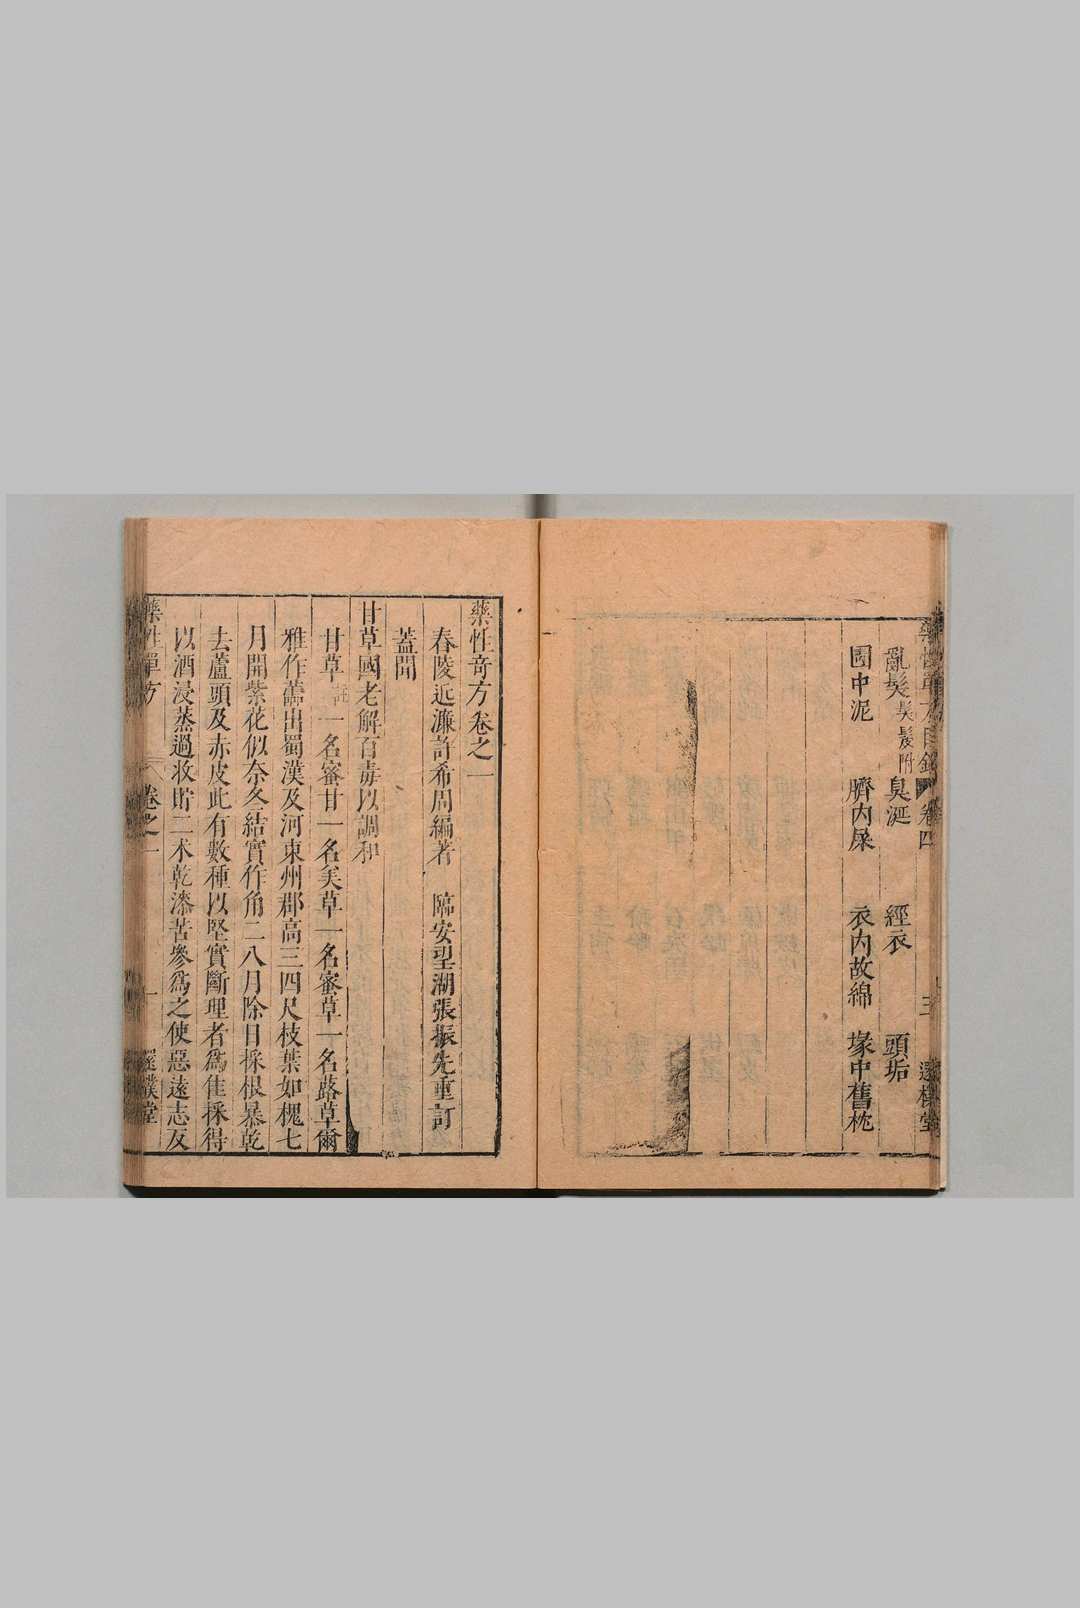 藥性單方目錄 卷四 三 還樸堂
亂髮髮髲附 臭涎 經衣 頭垢
園中泥 臍內屎 衣內故綿 塚中舊枕
藥性奇方卷之一
春陵近濂許希周編著 臨安望湖張振先重訂
蓋聞
甘草國老解百毒以調和
甘草註一名蜜甘一名美草一名蜜草一名蕗草爾
雅作蘦出蜀漢及河東州郡高三四尺枝葉如槐七
月開紫花似奈冬結實作角二八月除日採根暴乾
去蘆頭及赤皮此有數種以堅實斷理者爲佳採得
以酒浸蒸過收貯二术乾漆苦參爲之使惡遠志反
藥性單方 卷之一 一 還樸堂